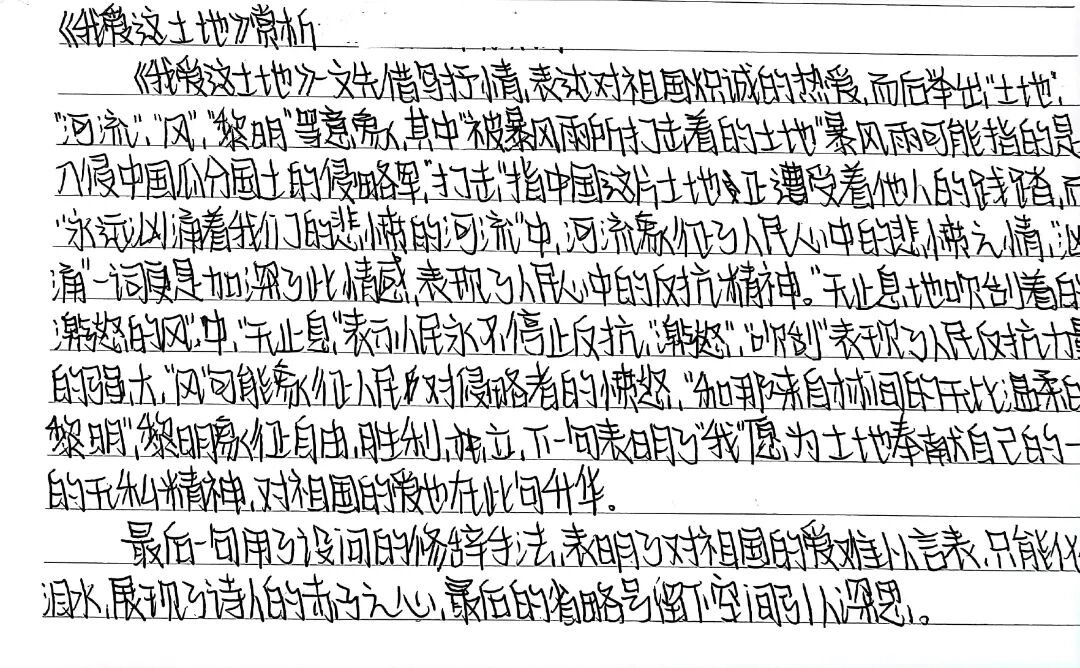 《我爱这土地》赏析
《我爱这土地》一文先借鸟抒情,表达对祖国炽诚的热爱,而后举出"土地",
"河流","风","黎明"等意象,其中"被暴风雨所打击着的土地"暴风雨可能指的是
入侵中国瓜分国土的侵略军,"打击"指中国这片土地正遭受着他人的践踏,而
"永远汹涌着我们的悲愤的河流"中,河流象征了人民心中的悲愤之情,"汹
涌"一词更是加深了此情感,表现了人民心中的反抗精神。"无止息地吹刮着的
激怒的风"中,"无止息"表示人民永不停止反抗,"激怒","吹刮"表现了人民反抗力量
的强大,"风"可能象征人民对侵略者的愤怒,"和那来自林间的无比温柔的
黎明",黎明象征自由,胜利,独立,下一句表明了"我"愿为土地奉献自己的一
的无私精神,对祖国的爱也在此句升华。
最后一句用了设问的修辞手法,表明了对祖国的爱难以言表,只能化
泪水,展现了诗人的赤子之心,最后的省略号留下空间引人深思。